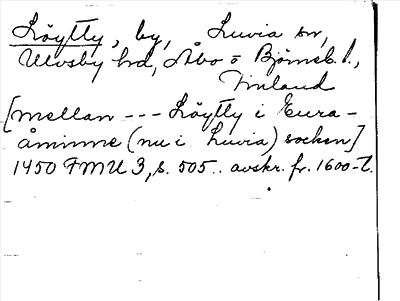 Löytty, by, Luvia sn,
Ulvsby hd, Åbo o Björneb. l.,
Finland
[mellan --- Löytty i Eura-
åminne (nu i Luvia) socken]
1450 FMU 3, s. 505.. avskr. fr. 1600-t.